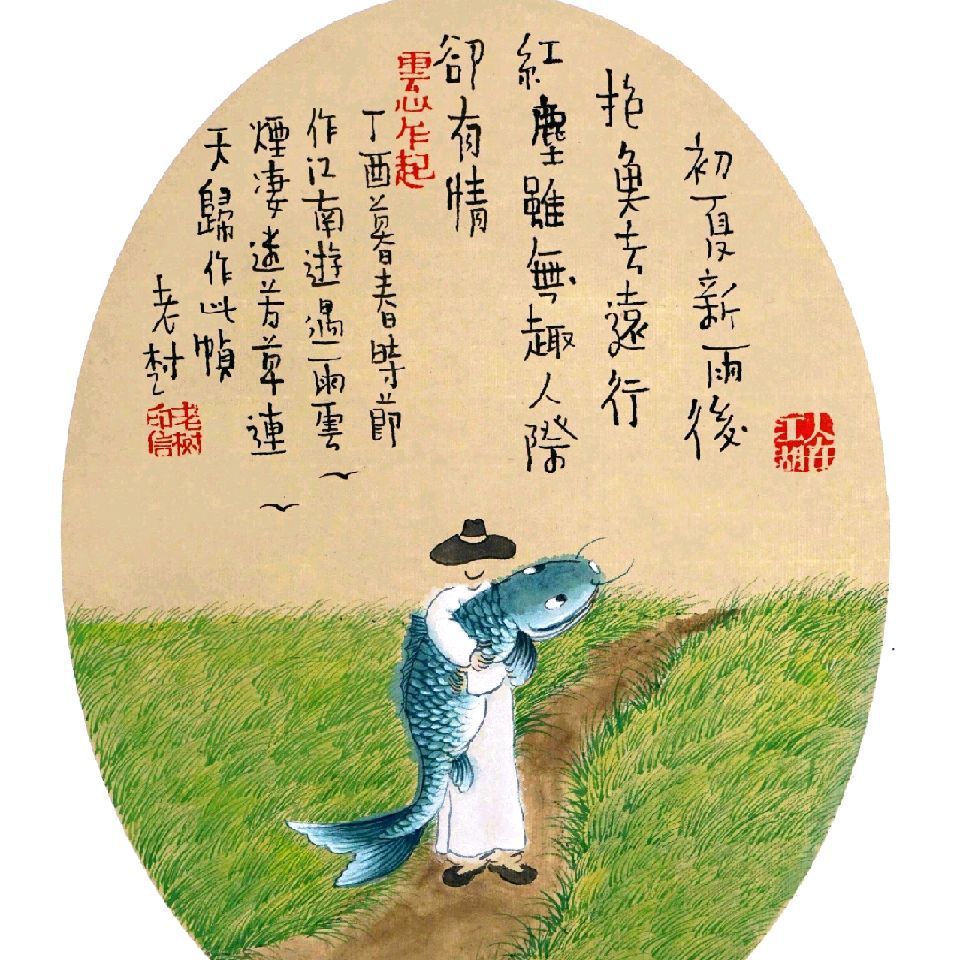 初夏新雨後
抱魚去遠行
紅塵雖無趣人際
卻有情
雲心乍起
丁酉暮春時節
作江南遊遇雨雲
煙淒迷芳草連
天歸作此幀
老村
老树
印信
人在
江湖